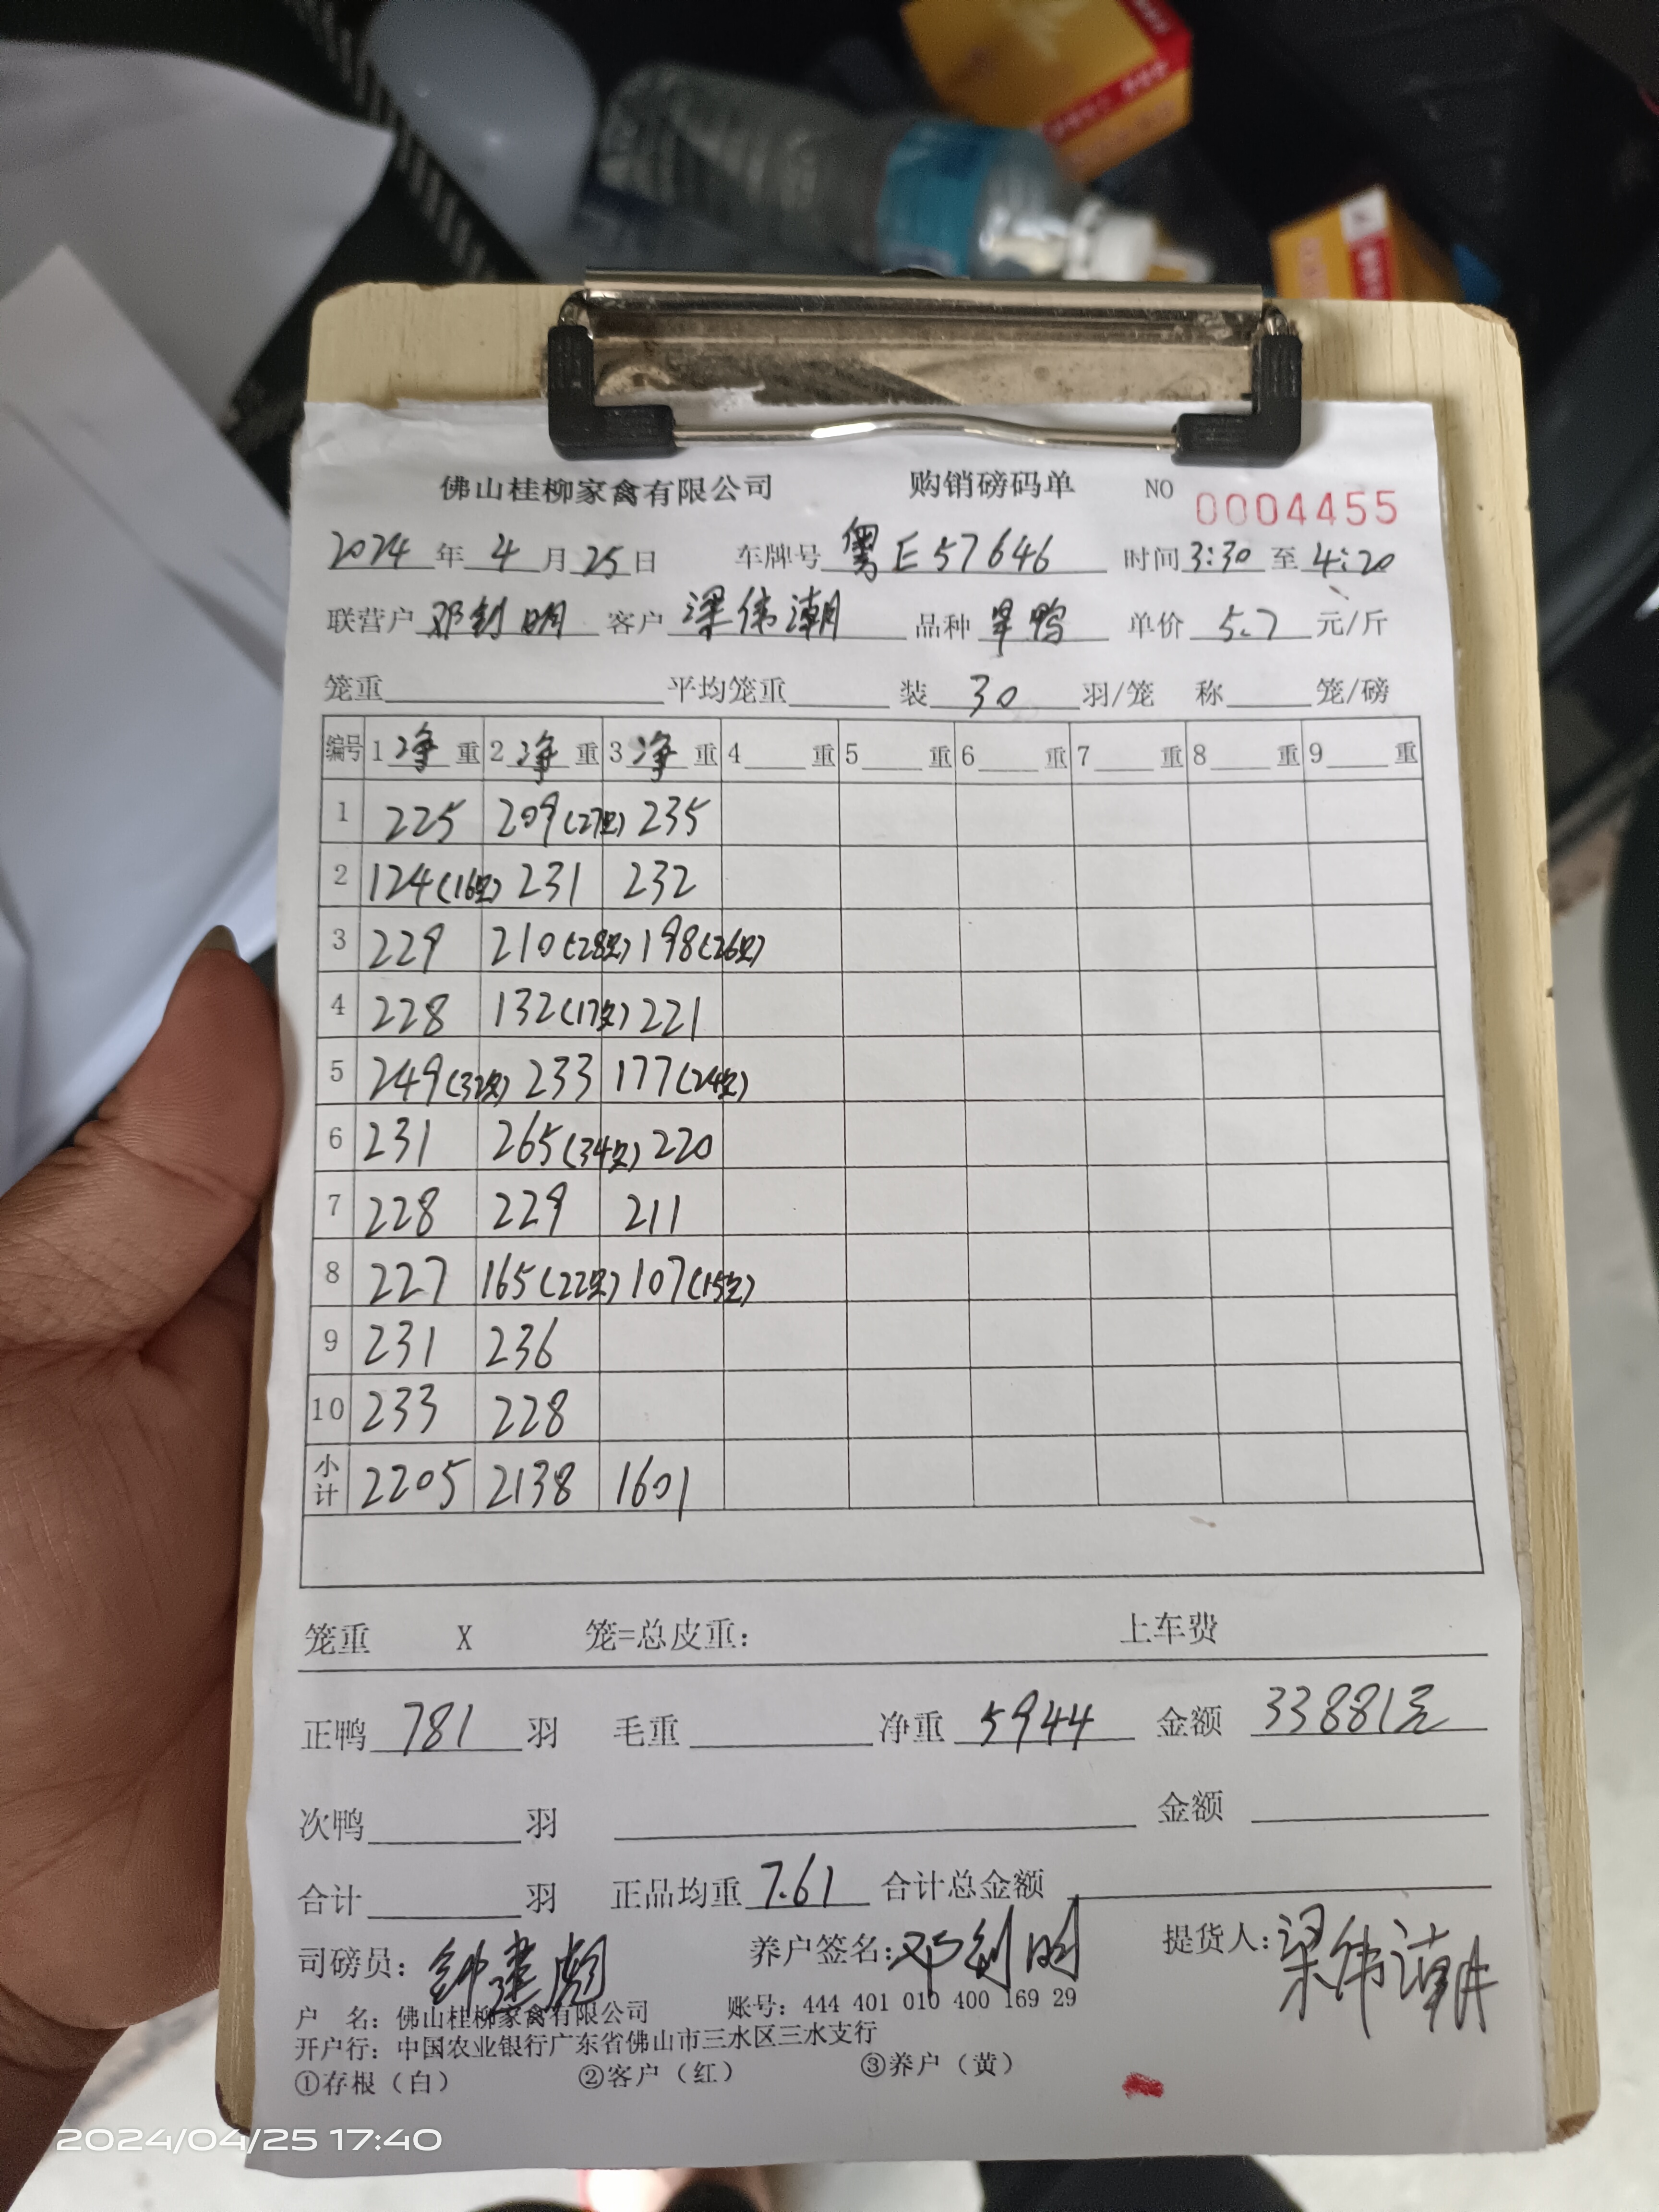 佛山桂柳家禽有限公司 购销磅码单 NO 0004455
2024年4月25日 车牌号 粤E57646 时间 3:30 至 4:20
联营户 邓钊明 客户 梁伟潮 品种 旱鸭 单价 5.7 元/斤
笼重 平均笼重 装 30 羽/笼 称 笼/磅
编号 1 净 重 2 净 重 3 净 重 4 重 5 重 6 重 7 重 8 重 9 重
1 225 209(27只) 235
2 124(16只) 231 232
3 229 210(28只) 198(26只)
4 228 132(17只) 221
5 249(32只) 233 177(24只)
6 231 265(34只) 220
7 228 229 211
8 227 165(22只) 107(15只)
9 231 236
10 233 228
小计 2205 2138 1601
笼重 X 笼=总皮重: 上车费
正鸭 781 羽 毛重 净重 5944 金额 33881元
次鸭 羽 金额
合计 羽 正品均重 7.61 合计总金额
司磅员: 钟建彪 养户签名: 邓钊明 提货人: 梁伟潮
户 名: 佛山桂柳家禽有限公司 账号: 444 401 010 400 169 29
开户行: 中国农业银行广东省佛山市三水区三水支行
①存根(白) ②客户(红) ③养户(黄)
2024/04/25 17:40